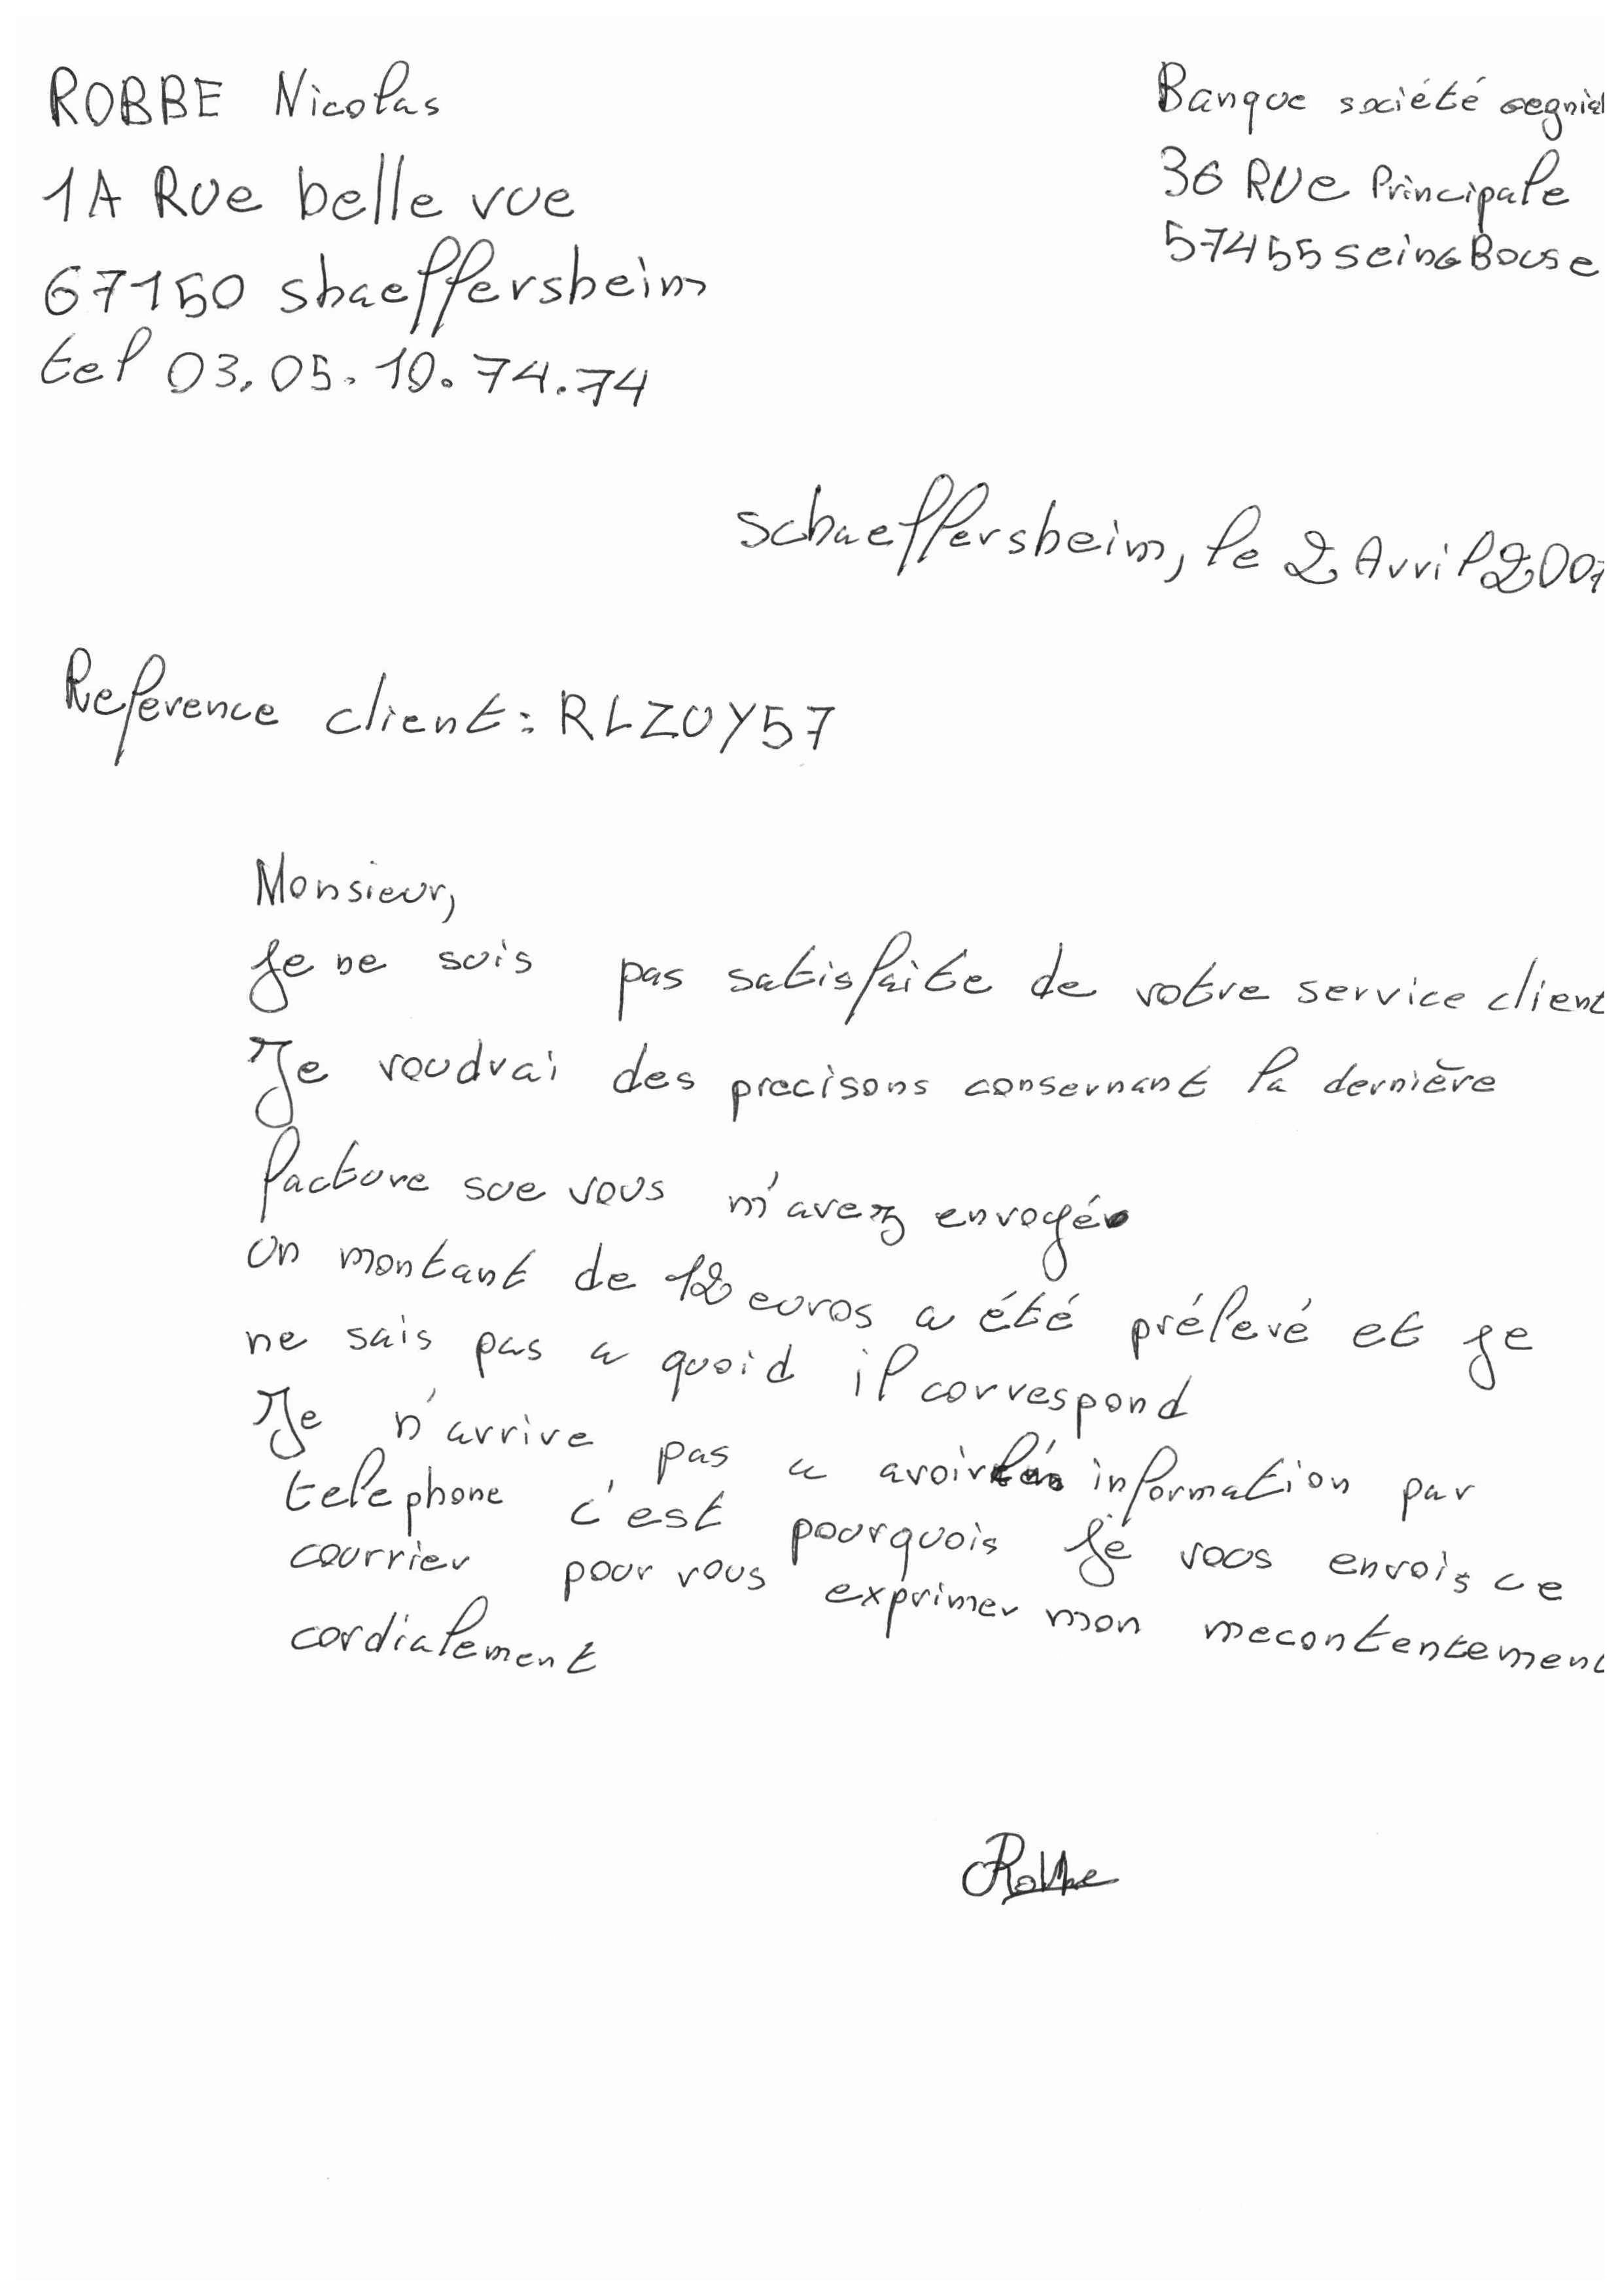 ROBBE Nicolas
1A Rue belle vue
67150 shaeffersheim
tel 03.05.10.74.74
Banque société
36 RUe Principale
57455 seinGBouse
schaeffersheim, le 2 Avril 2007
Reference client : RLZUY57
Monsieur,
Je ne suis pas satisfaite de votre service client
Je voudrai des precisons consernant la dernière
facture sue vous m'avez envoyé
Un montant de 12 euros a été prélevé et je
ne sais pas a quoid il correspond
Je n'arrive pas a avoir information par
telephone, c'est pourquois je vous envois ce
courrier pour vous exprimer mon mecontentement
cordialement
Robbe